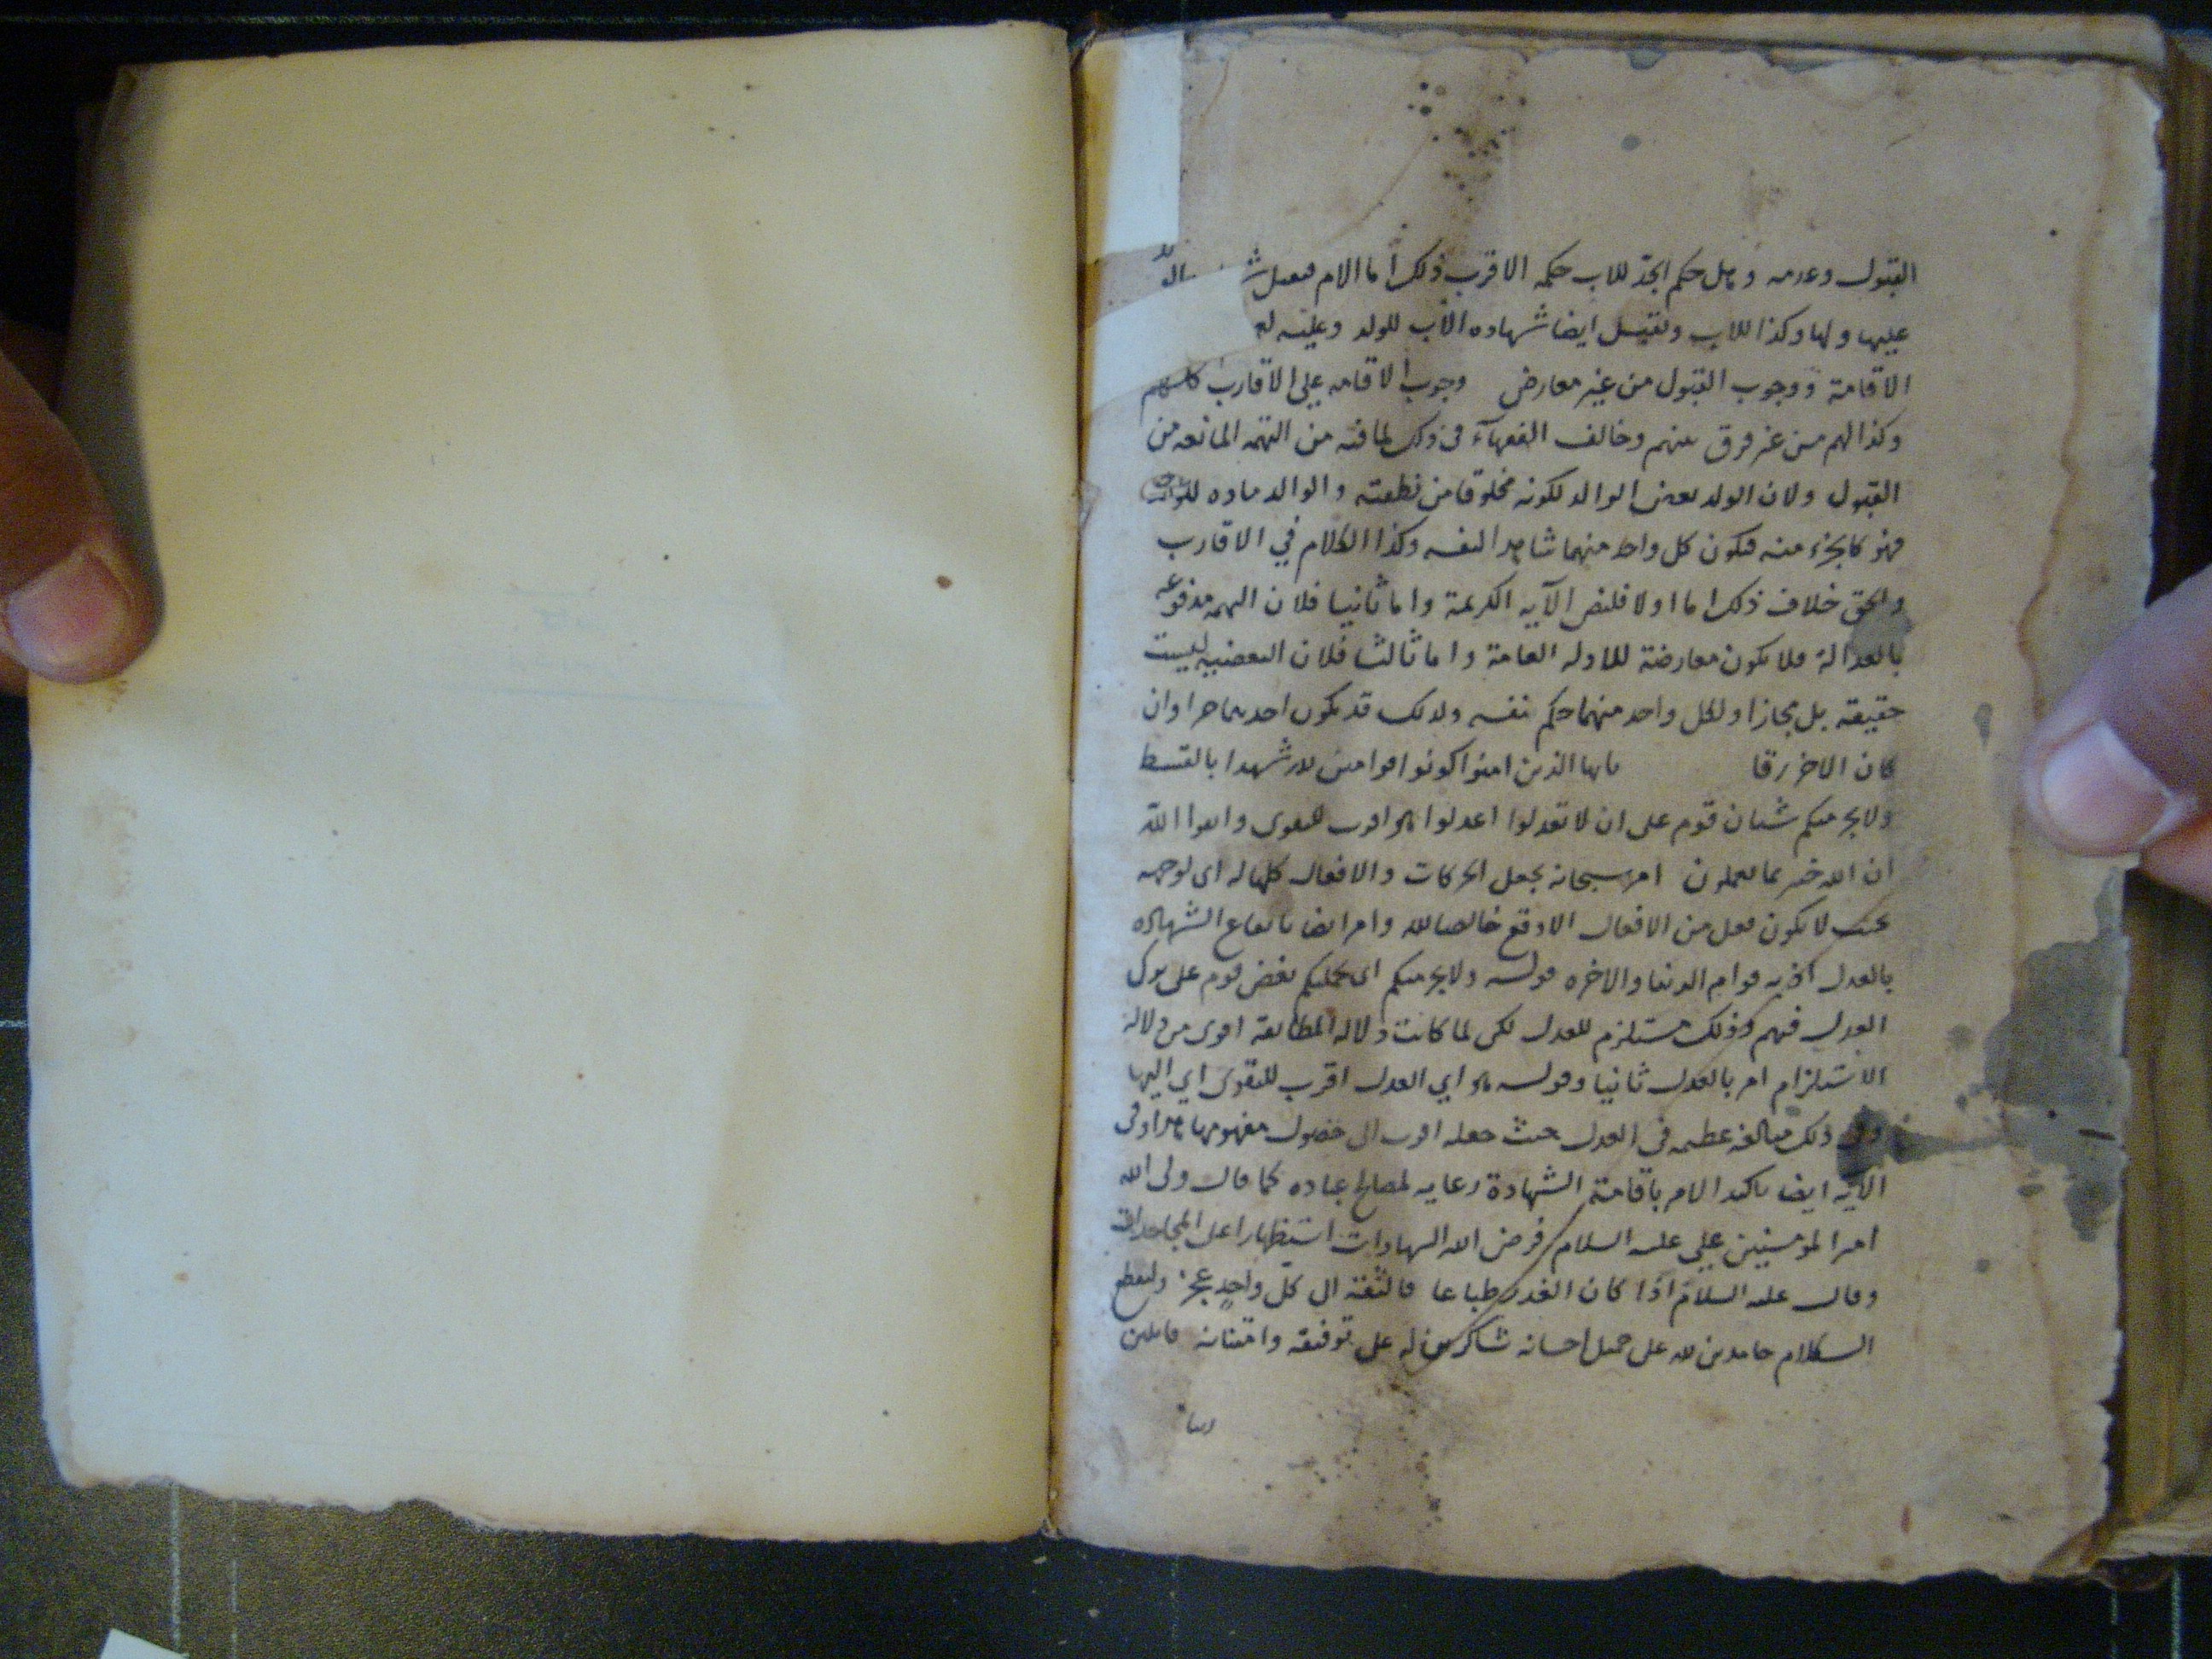 القبول وعدمه وهل حكم الجد للاب حكمه الاقرب ذلك اما الام فيقبل
عليها ولها وكذا للاب ويقبل ايضا شهاده الأب للولد وعليه
الاقامة ووجوب القبول من غير معارض وجوب الاقامه على الاقارب كلهم
وكذا لهم من غير فرق بينهم وخالف الفقهآء في ذلك لما فيه من التهمه المانعه من
القبول ولان الولد بعض الوالد لكونه مخلوقا من نطفته والوالد ماده للولد
فهو كالجزء منه فيكون كل واحد منهما شاهدا لنفسه وكذا الكلام في الاقارب
والحق خلاف ذلك اما اولا فلنص الآيه الكريمة واما ثانيا فلان التهمه مدفوعه
بالعدالة فلا يكون معارضة للادله العامة واما ثالثا فلان البعضيه ليست
حقيقه بل مجازا ولكل واحد منهما حكم نفسه ولذلك قد يكون احدهما حرا وان
كان الاخر رقا يايها الذين امنوا كونوا قوامين لله شهدا بالقسط
ولا يجرمنكم شنان قوم على ان لا تعدلوا اعدلوا هو اقرب للتقوى واتقوا الله
ان الله خبير بما تعملون امر سبحانه بجعل الحركات والافعال كلها له اى لوجهه
بحيث لا يكون فعل من الافعال الا وقع خالصا لله وامر ايضا بايقاع الشهاده
بالعدل اذ به قوام الدنيا والاخره قوله ولا يجرمنكم اى يحملنكم بغض قوم على ترك
العدل فيهم وذلك مستلزم للعدل لكن لما كانت دلاله المطابقة اقوى من دلالة
الاستلزام امر بالعدل ثانيا وقوله هو اي العدل اقرب للتقوى اي اليها
وفى ذلك مبالغه عظيمه في العدل حيث جعله اقرب الى حصول مفهومها هذا وفى
الآية ايضا تاكيد الامر باقامة الشهادة رعايه لمصالح عباده كما قال ولى الله
امير المومنين علي عليه السلام فرض الله الشهادات استظهارا على المجاحدات
وقال عليه السلام اذا كان الغدر طباعا فالثقة الى كل واحد عجز ولنقطع
الكلام حامدين لله على جميل احسانه شاكرين له على توفيقه وامتنانه قايلين
ربنا